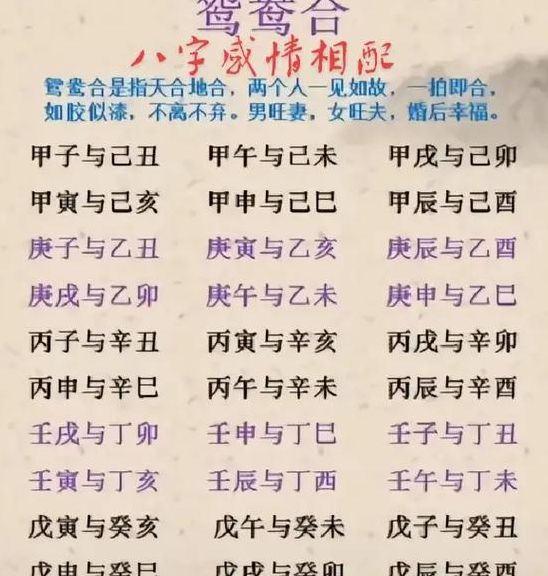 鸳鸯合
八字感情相配
鸳鸯合是指天合地合，两个人一见如故，一拍即合，
如胶似漆，不离不弃。男旺妻，女旺夫，婚后幸福。
甲子与己丑 甲午与己未 甲戌与己卯
甲寅与己亥 甲申与己巳 甲辰与己酉
庚子与乙丑 庚寅与乙亥 庚辰与乙酉
庚戌与乙卯 庚午与乙未 庚申与乙巳
丙子与辛丑 丙寅与辛亥 丙戌与辛卯
丙申与辛巳 丙午与辛未 丙辰与辛酉
壬戌与丁卯 壬申与丁巳 壬子与丁丑
壬寅与丁亥 壬辰与丁西 壬午与丁未
戊寅与癸亥 戊午与癸未 戊子与癸丑
戊申与癸巳 戊戌与癸卯 戊辰与癸酉